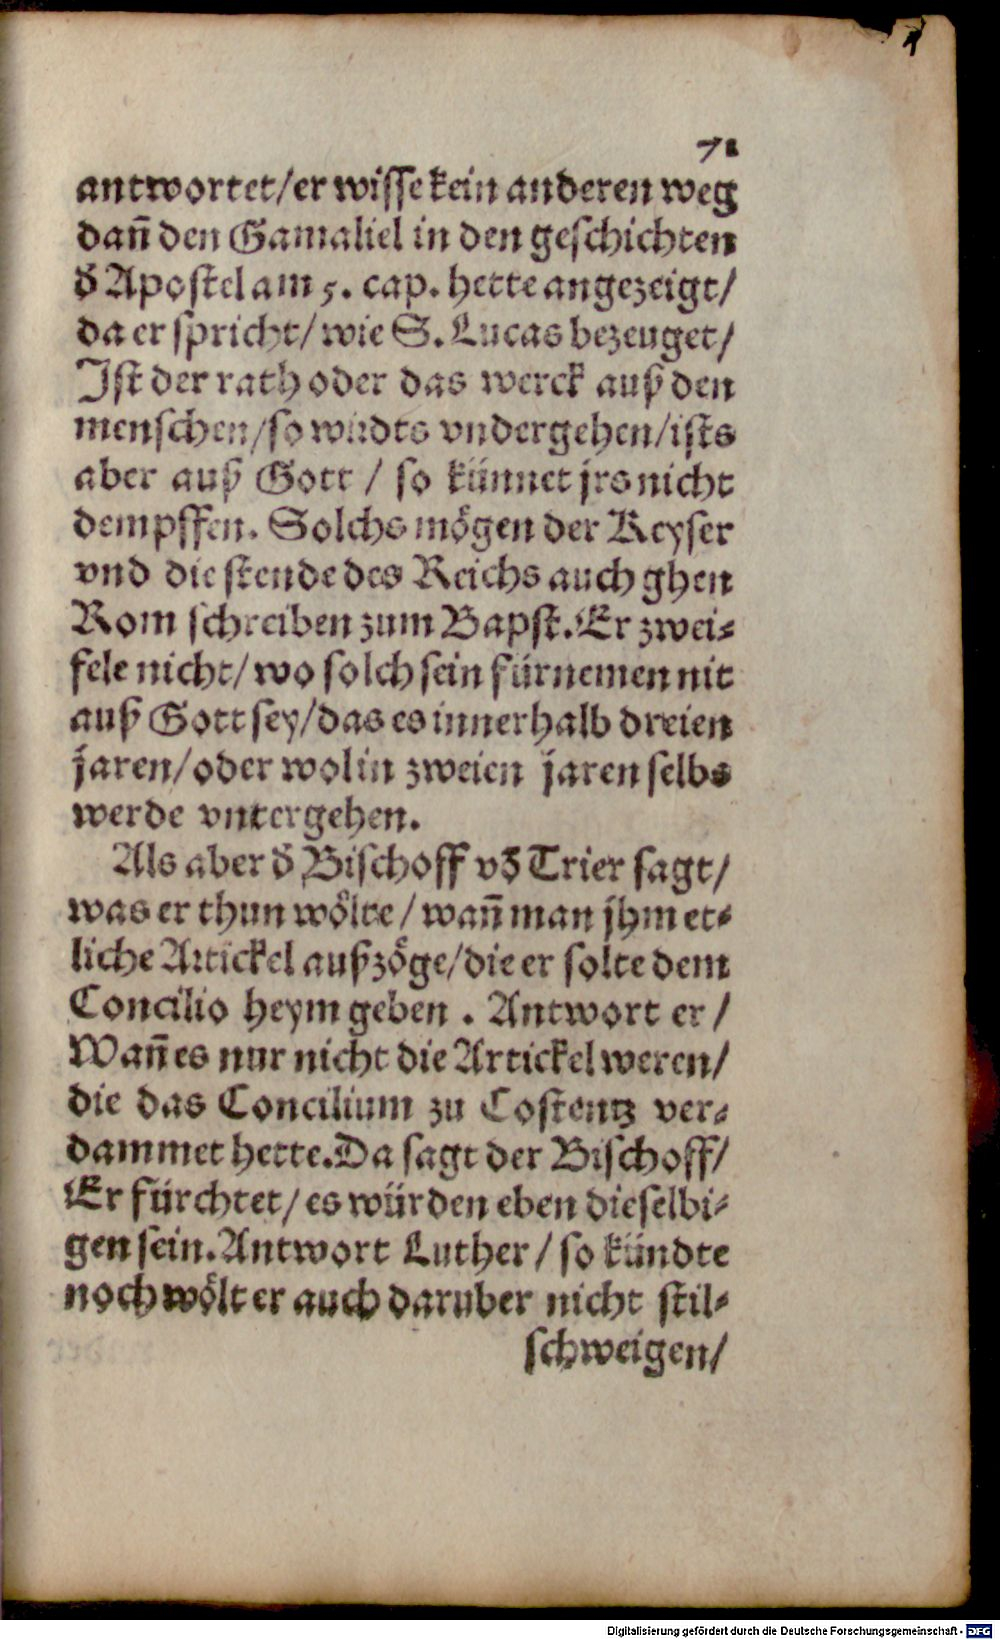 71
antwortet/er wisse kein anderen weg
dañ den Gamaliel in den geschichten
d̃ Apostel am 5. cap. hette angezeigt/
da er spricht/ wie S. Lucas bezeuget/
Ist der rath oder das werck auß den
menschen/so wirdts vndergehen/ists
aber auß Gott / so künnet jrs nicht
dempffen. Solchs mögen der Keyser
vnd die stende des Reichs auch ghen
Rom schreiben zum Bapst. Er zwei-
fele nicht/ wo solch sein fürnemen nit
auß Gott sey/das es innerhalb dreien
jaren/oder wol in zweien jaren selbs
werde vntergehen.
Als aber d̃ Bischoff võ Trier sagt/
was er thun wölte/ wañ man jhm et-
liche Artickel außzöge/die er solte dem
Concilio heym geben . Antwort er/
Wañ es nur nicht die Artickel weren/
die das Concilium zu Costentz ver-
dammet hette. Da sagt der Bischoff/
Er fürchtet/ es würden eben dieselbi-
gen sein. Antwort Luther/ so kündte
noch wölt er auch daruber nicht stil-
schweigen/
Digitalisierung gefördert durch die Deutsche Forschungsgemeinschaft - DFG